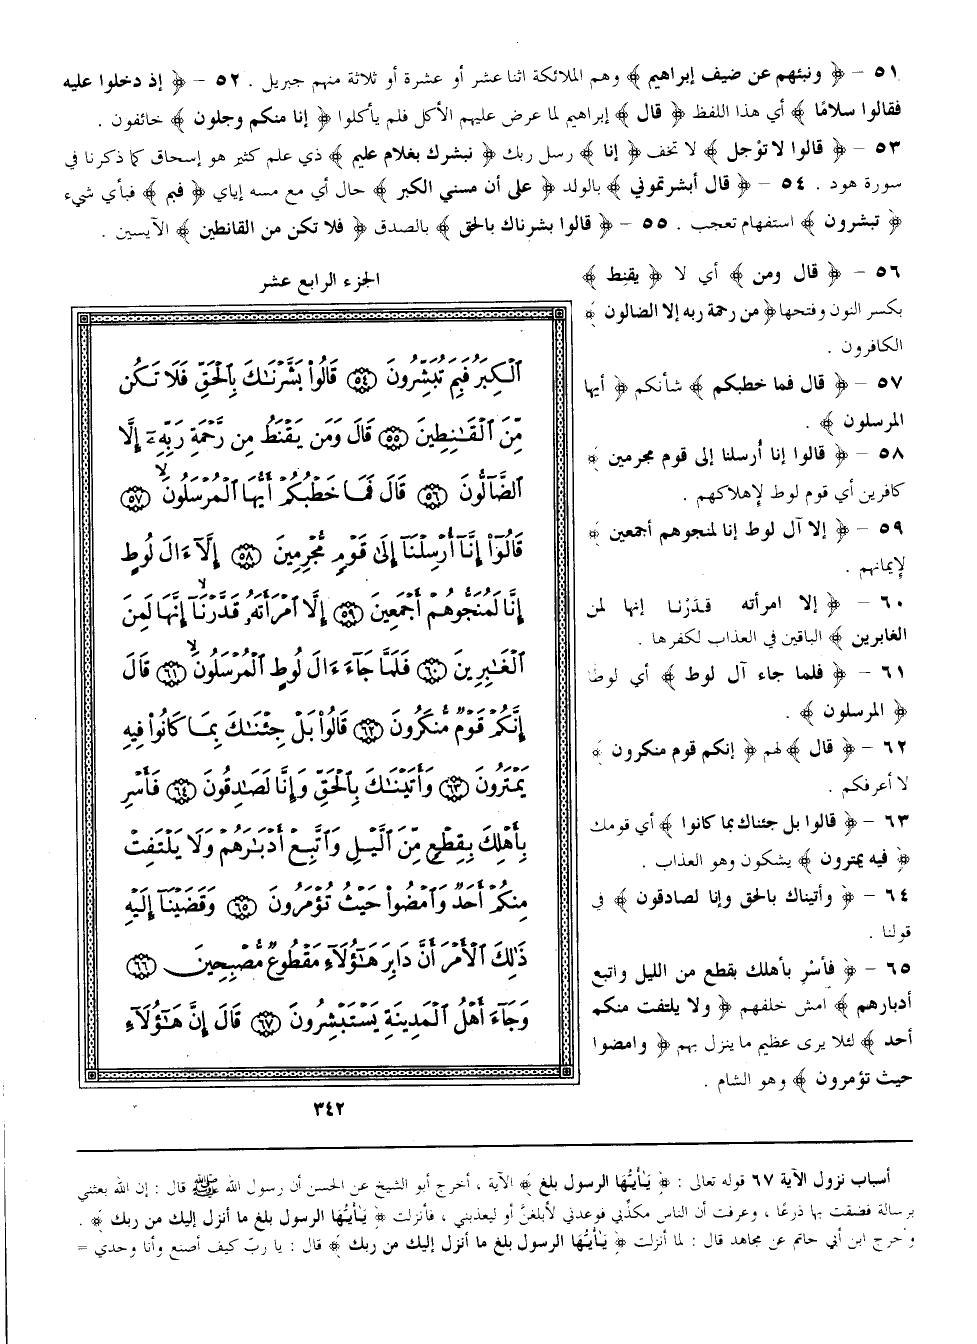 ٥١ – ﴿ ونبئهم عن ضيف إبراهيم ﴾ وهم الملائكة اثنا عشر أو عشرة أو ثلاثة منهم جبريل . ٥٢ – ﴿ إذ دخلوا عليه
فقالوا سلامًا ﴾ أي هذا اللفظ ﴿ قال ﴾ إبراهيم لما عرض عليهم الأكل فلم يأكلوا ﴿ إنا منكم وجلون ﴾ خائفون .
٥٣ – ﴿ قالوا لا توْجل ﴾ لا تخف ﴿ إنا ﴾ رسل ربك ﴿ نبشرك بغلام عليم ﴾ ذي علم كثير هو إسحاق كما ذكرنا في
سورة هود . ٥٤ – ﴿ قال أبشرتموني ﴾ بالولد ﴿ على أن مسني الكبر ﴾ حال أي مع مسه إياي ﴿ فبم ﴾ فبأي شيء
﴿ تبشرون ﴾ استفهام تعجب . ٥٥ – ﴿ قالوا بشرناك بالحق ﴾ بالصدق ﴿ فلا تكن من القانطين ﴾ الآيسين .
٥٦ – ﴿ قال ومن ﴾ أي لا ﴿ يقنط ﴾
بكسر النون وفتحها ﴿ من رحمة ربه إلا الضالون ﴾
الكافرون .
٥٧ – ﴿ قال فما خطبكم ﴾ شأنكم ﴿ أيها
المرسلون ﴾ .
٥٨ – ﴿ قالوا إنا أُرسلنا إلى قوم مجرمين ﴾
كافرين أي قوم لوط لإهلاكهم .
٥٩ – ﴿ إلا آل لوط إنا لمنجوهم أجمعين ﴾
لإيمانهم .
٦٠ – ﴿ إلا امرأته قدَرْنا إنها لمن
الغابرين ﴾ الباقين في العذاب لكفرها .
٦١ – ﴿ فلما جاء آل لوط ﴾ أي لوطًا
﴿ المرسلون ﴾ .
٦٢ – ﴿ قال ﴾ لهم ﴿ إنكم قوم منكرون ﴾
لا أعرفكم .
٦٣ – ﴿ قالوا بل جئناك بما كانوا ﴾ أي قومك
﴿ فيه يمترون ﴾ يشكون وهو العذاب .
٦٤ – ﴿ وأتيناك بالحق وإنا لصادقون ﴾ في
قولنا .
٦٥ – ﴿ فأسْرِ بأهلك بقطع من الليل واتبع
أدبارهم ﴾ امش خلفهم ﴿ ولا يلتفت منكم
أحد ﴾ لئلا يرى عظيم ما ينزل بهم ﴿ وامضوا
حيث تؤمرون ﴾ وهو الشام .
الجزء الرابع عشر
ٱلْكِبَرُ فَبِمَ تُبَشِّرُونَ ٥٤ قَالُوا۟ بَشَّرْنَٰكَ بِٱلْحَقِّ فَلَا تَكُن
مِّنَ ٱلْقَٰنِطِينَ ٥٥ قَالَ وَمَن يَقْنَطُ مِن رَّحْمَةِ رَبِّهِۦٓ إِلَّا
ٱلضَّآلُّونَ ٥٦ قَالَ فَمَا خَطْبُكُمْ أَيُّهَا ٱلْمُرْسَلُونَ ٥٧
قَالُوٓا۟ إِنَّآ أُرْسِلْنَآ إِلَىٰ قَوْمٍ مُّجْرِمِينَ ٥٨ إِلَّآ ءَالَ لُوطٍ
إِنَّا لَمُنَجُّوهُمْ أَجْمَعِينَ ٥٩ إِلَّا ٱمْرَأَتَهُۥ قَدَّرْنَآ إِنَّهَا لَمِنَ
ٱلْغَٰبِرِينَ ٦٠ فَلَمَّا جَآءَ ءَالَ لُوطٍ ٱلْمُرْسَلُونَ ٦١ قَالَ
إِنَّكُمْ قَوْمٌ مُّنكَرُونَ ٦٢ قَالُوا۟ بَلْ جِئْنَٰكَ بِمَا كَانُوا۟ فِيهِ
يَمْتَرُونَ ٦٣ وَأَتَيْنَٰكَ بِٱلْحَقِّ وَإِنَّا لَصَٰدِقُونَ ٦٤ فَأَسْرِ
بِأَهْلِكَ بِقِطْعٍ مِّنَ ٱلَّيْلِ وَٱتَّبِعْ أَدْبَٰرَهُمْ وَلَا يَلْتَفِتْ
مِنكُمْ أَحَدٌ وَٱمْضُوا۟ حَيْثُ تُؤْمَرُونَ ٦٥ وَقَضَيْنَآ إِلَيْهِ
ذَٰلِكَ ٱلْأَمْرَ أَنَّ دَابِرَ هَٰٓؤُلَآءِ مَقْطُوعٌ مُّصْبِحِينَ ٦٦
وَجَآءَ أَهْلُ ٱلْمَدِينَةِ يَسْتَبْشِرُونَ ٦٧ قَالَ إِنَّ هَٰٓؤُلَآءِ
٣٤٢
أسباب نزول الآية ٦٧ قوله تعالى : ﴿ يَـٰأيُّهَا الرسول بلغ ﴾ الآية ، أخرج أبو الشيخ عن الحسن أن رسول الله ﷺ قال : إن الله بعثني
برسالة فضقت بها ذرعًا ، وعرفت أن الناس مكذِّبي فوعدني لأبلغنَّ أو ليعذبني ، فأنزلت ﴿ يَـٰأيُّهَا الرسول بلغ ما أنزل إليك من ربك ﴾ .
وأخرج ابن أبي حاتم عن مجاهد قال : لما أنزلت ﴿ يَـٰأيُّهَا الرسول بلغ ما أنزل إليك من ربك ﴾ قال : يا ربّ كيف أصنع وأنا وحدي =